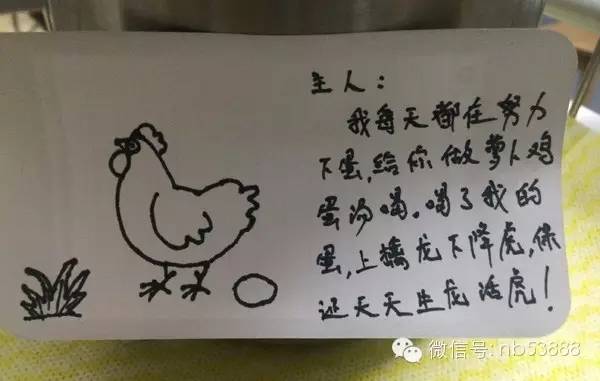 主人：
我每天都在努力
下蛋，给你做萝卜鸡
蛋汤喝。喝了我的
蛋，上擒龙下降虎，保
证天天生龙活虎！
微信号: nb53888